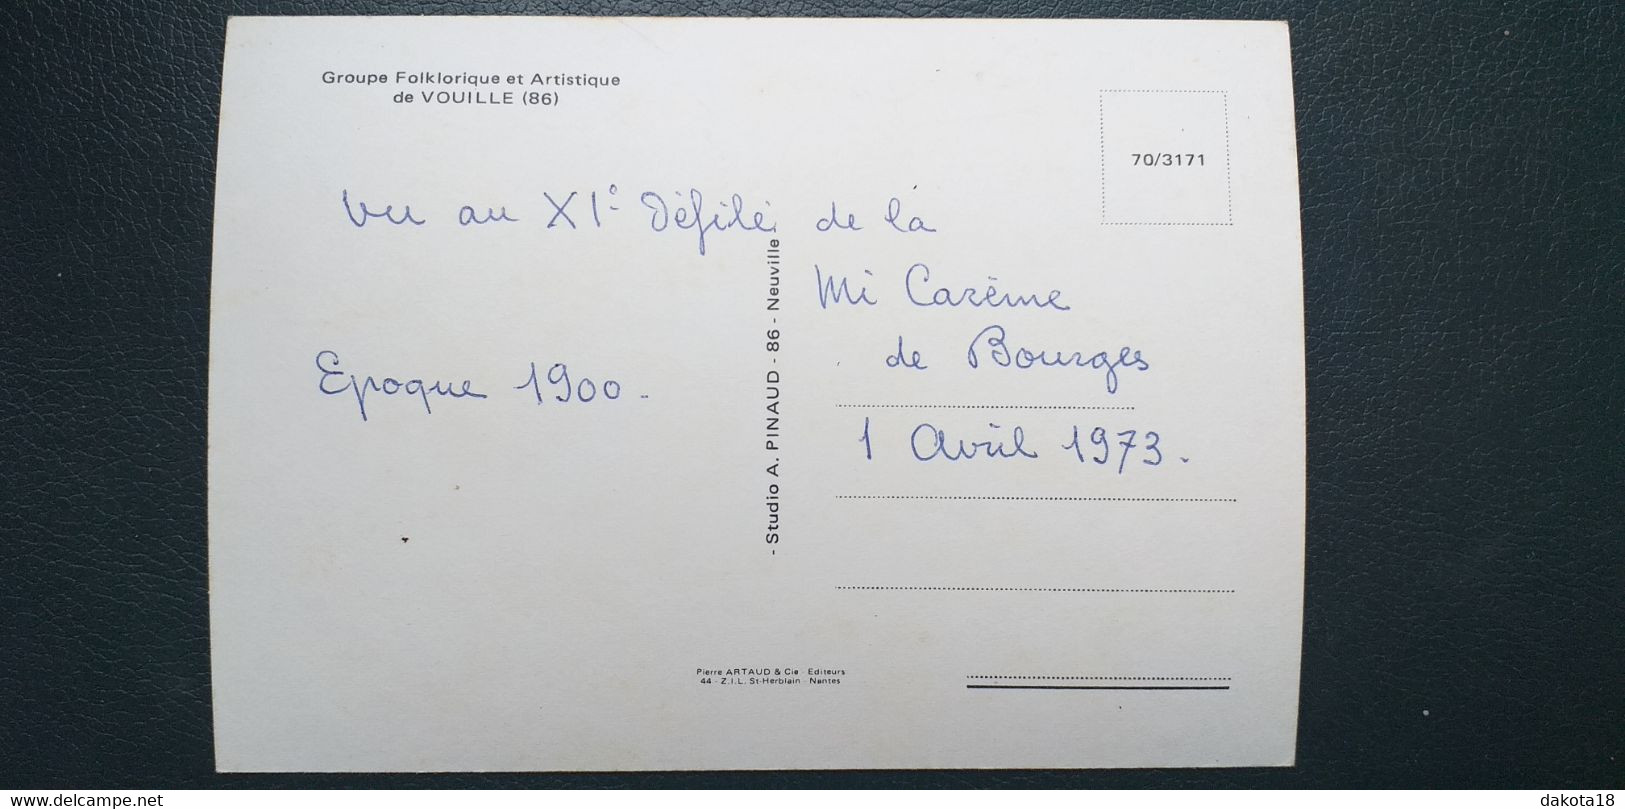 Groupe Folklorique et Artistique
de VOUILLE (86)
70/3171
Vu au XIe Défilé de la
Mi Carême
de Bourges
Epoque 1900.
1 Avril 1973.
- Studio A. PINAUD - 86 - Neuville -
Pierre ARTAUD & Cie - Editeurs
44 - Z.I.L. St-Herblain - Nantes
delcampe.net
dakota18